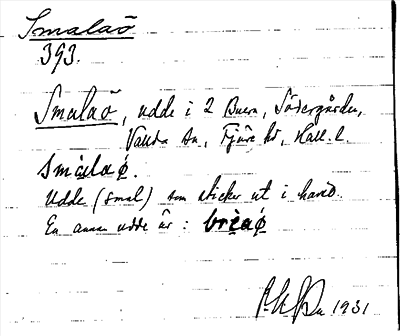 Smalaö
393.
Smalaö, udde i 2 Buera, Södergården,
Vallda sn, Fjäre hd, Hall. l.
smàlaǿ.
Udde (smal) som sticker ut i havet.
En annan udde är: brèaǿ
1931